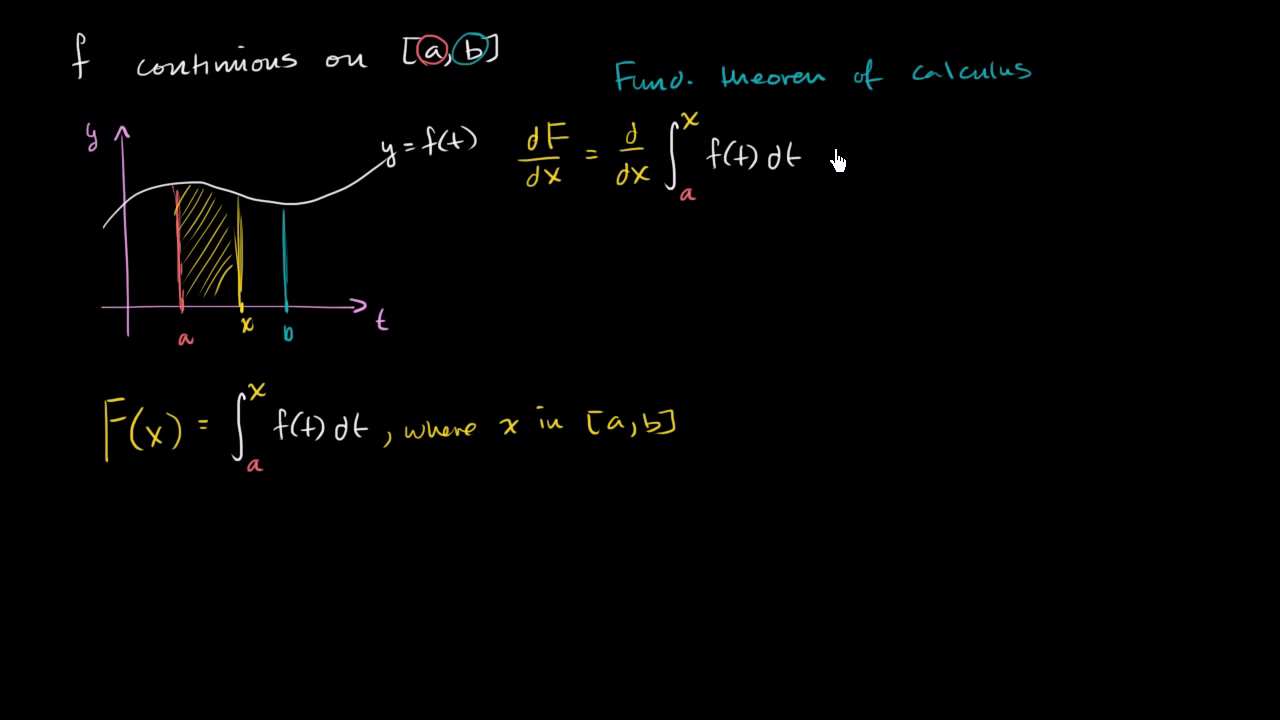 f continuous on [a, b]
Fund. theorem of calculus
y
y = f(t)
dF/dx = d/dx ∫_a^x f(t) dt
a
x
b
t
F(x) = ∫_a^x f(t) dt, where x in [a, b]